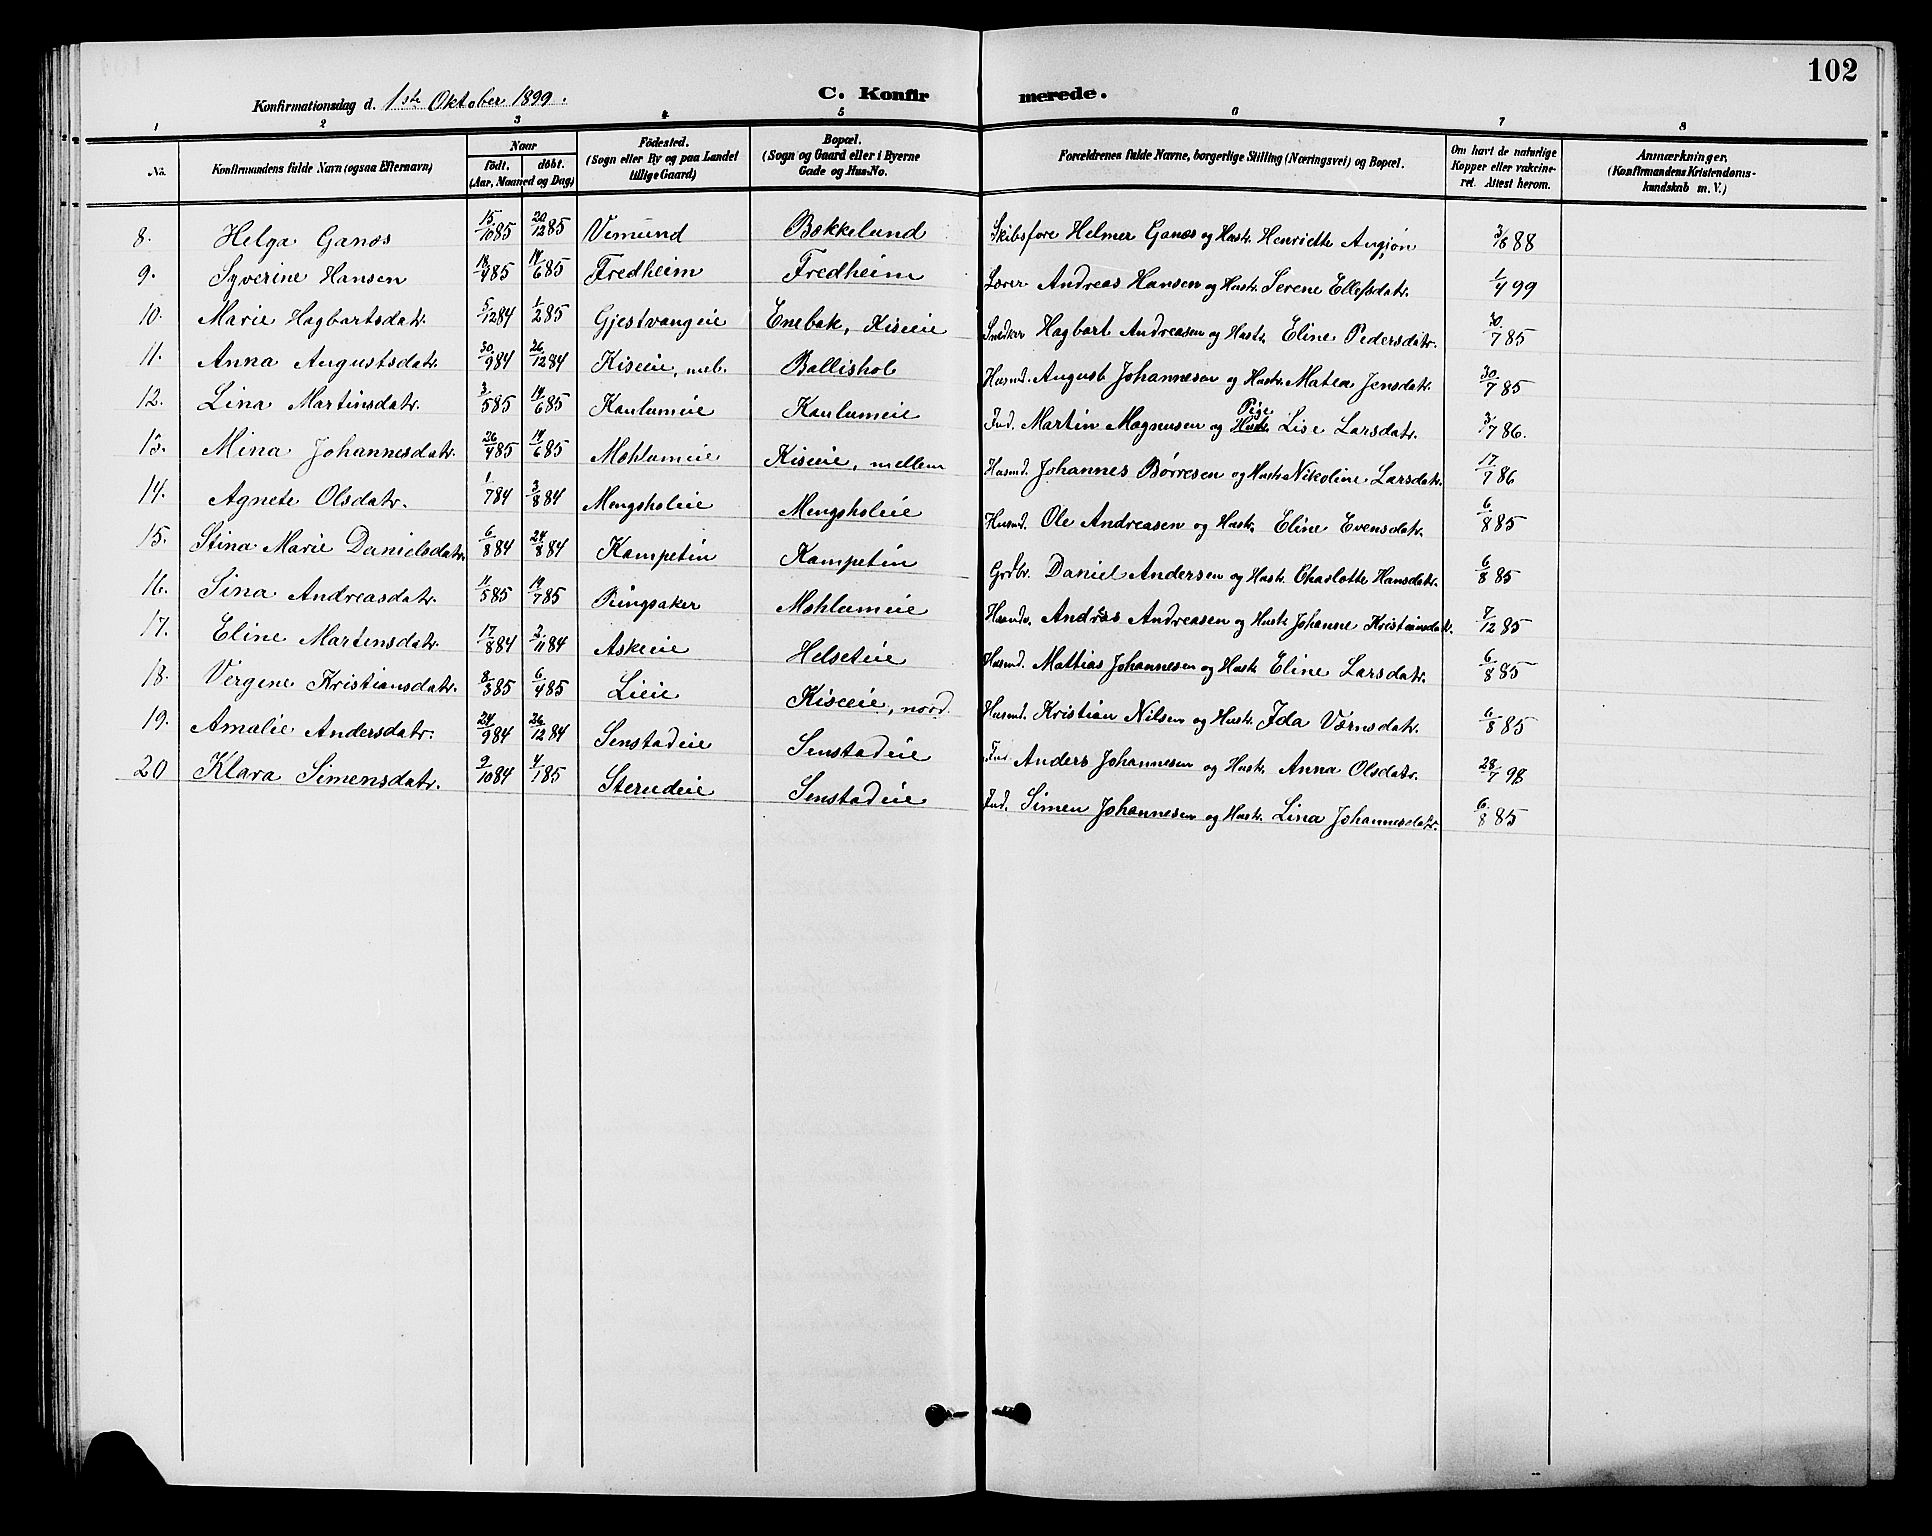 102
Konfirmationsdag d. 1ste Oktober 1899. C. Konfirmerede.
1 2 3 4 5 6 7 8
No. Konfirmandens fulde Navn (ogsaa Efternavn) Naar födt. döbt. (Aar, Maaned og Dag) Födested. (Sogn eller By og paa Landet tillige Gaard) Bopæl. (Sogn og Gaard eller i Byerne Gade og Hus-No. Forældrenes fulde Navne, borgerlige Stilling (Næringsvei) og Bopæl. Om havt de naturlige Kopper eller vakcineret. Attest herom. Anmærkninger, (Konfirmandens Kristendomskundskab m. V.)
8. Helga Ganæs 15/10 85 20/12 85 Vemund Bakkelund Skibsføre Helmer Ganæs og Hustr. Henriette 3/6 88
9. Syverine Hansen 18/4 85 14/6 85 Fredheim Fredheim Lærer Andreas Hansen og Hustr. Serene Ellefsdatr. 1/4 99
10. Marie Hagbartsdatr. 5/12 84 1/2 85 Gjestvangeie Enebak, Kiseie Snedker Hagbart Andreasen og Hustr. Eline Pedersdatr. 30/7 85
11. Anna Augustsdatr. 30/9 84 26/12 84 Kiseie, mel. Ballishol Husmd. August Johannesen og Hustr. Matea Jensdatr. 30/7 85
12. Lina Martinsdatr. 3/5 85 14/6 85 Kaulumeie Kaulumeie Ind. Martin Magnusen og Hustr. Pige Lise Larsdatr. 3/7 86.
13. Mina Johannesdatr. 26/4 85 14/6 85 Mohlumeie Kiseie, mellem Husmd. Johannes Børresen og Hustr. Nikoline Larsdatr. 17/7 86
14. Agnete Olsdatr. 1/7 84 3/8 84 Mengsholeie Mengsholeie Husmd. Ole Andreasen og Hustr. Eline Evensdatr. 6/8 85
15. Stina Marie Danielsdatr. 6/8 84 24/8 84 Kampetin Kampetin Grdbr. Daniel Andersen og Hustr. Charlotte Hansdatr. 6/8 85
16. Sina Andreasdatr. 11/5 85 19/7 85 Ringsaker Mohlumeie Husmd. Andreas Andreasen og Hustr. Johanne Kristiansdatr. 7/12 85
17. Eline Martinsdatr. 17/8 84 2/11 84 Askeie Helseteie Husmd. Mattias Johannesen og Hustr. Eline Larsdatr. 6/8 85
18. Vergene Kristiansdatr. 8/3 85 6/4 85 Lieie Kiseie, nord. Husmd. Kristian Nilsen og Hustr. Ida Værnsdatr. 6/8 85
19. Amalie Andersdatr. 24/9 84 26/12 84 Senstadeie Senstadeie Ind. Anders Johannesen og Hustr. Anna Olsdatr. 28/7 98
20 Klara Simensdatr. 9/10 84 4/1 85 Sterudeie Senstadeie Ind. Simen Johannesen og Hustr. Lina Johannesdatr. 6/8 85